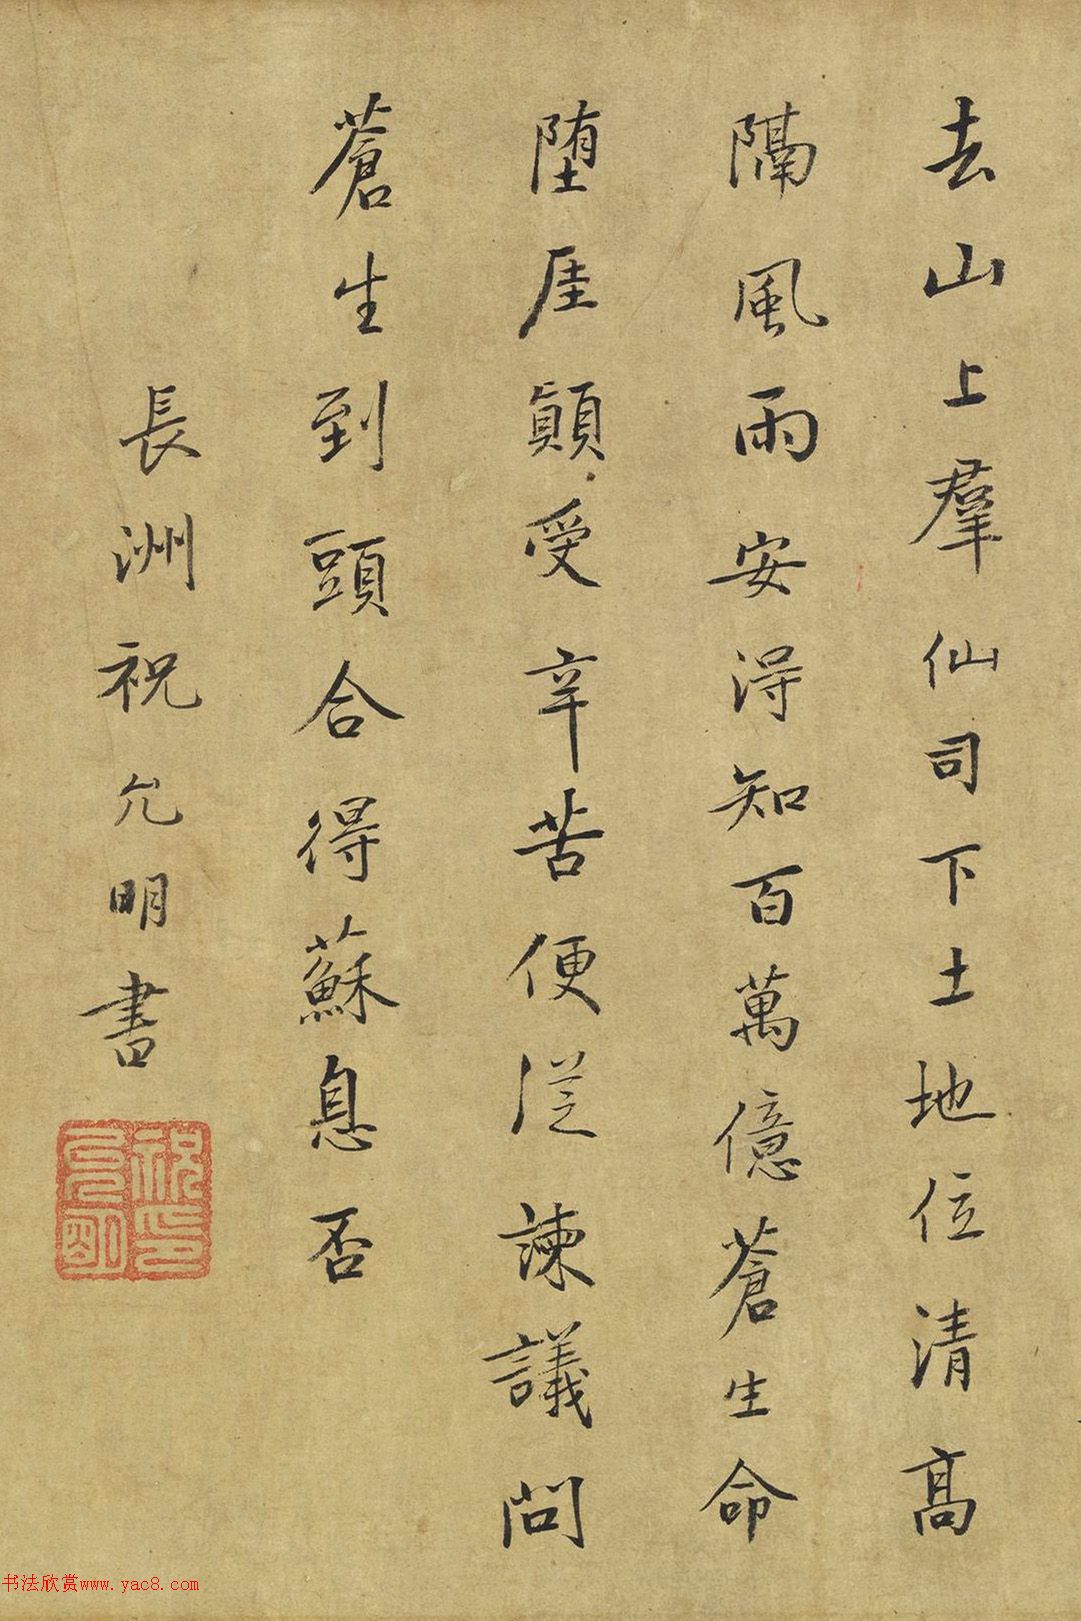 去山上羣仙司下土地位清高
隔風雨安得知百萬億蒼生命
堕厓顛受辛苦便從諫議問
蒼生到頭合得蘇息否
長洲祝允明書
祝允明印
书法欣赏www.yac8.com